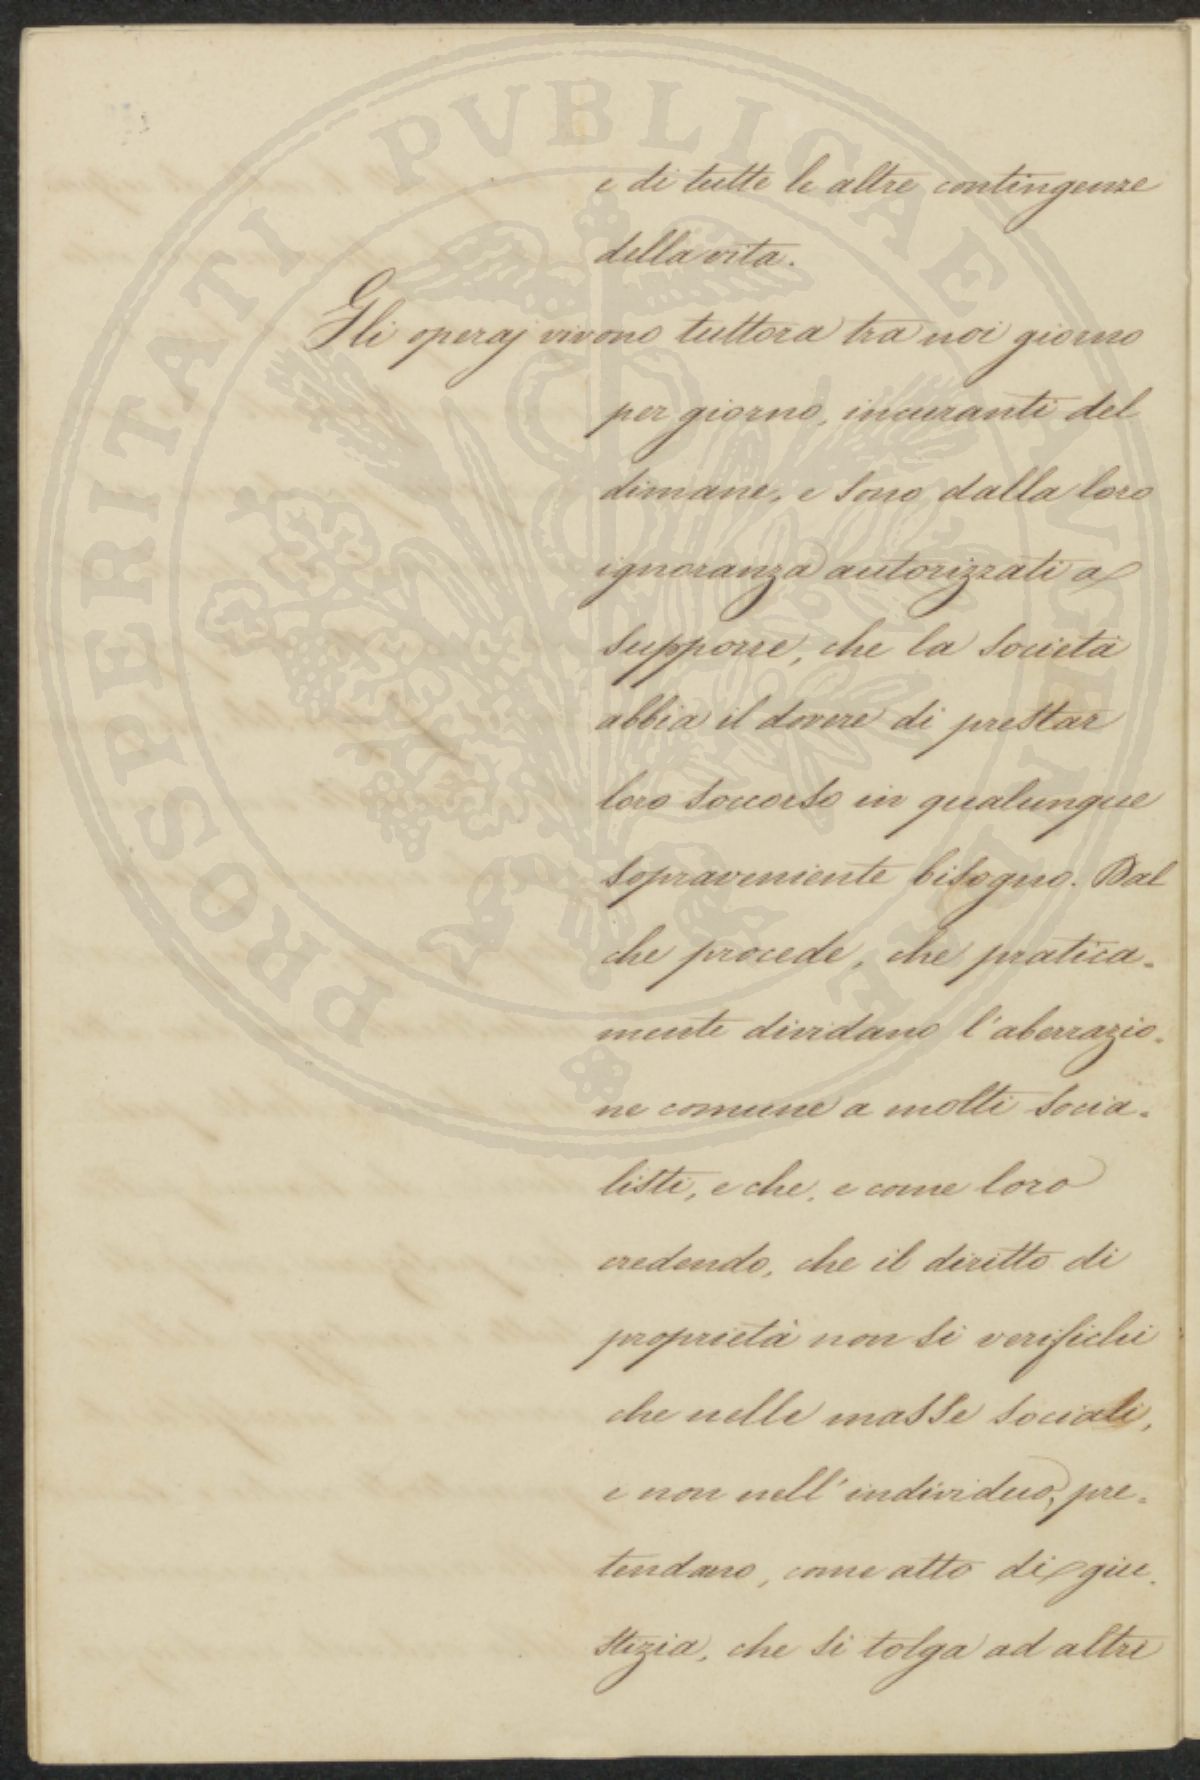 PROSPERITATI PVBLICAE AVGENDAE
e di tutte le altre contingenze
della vita.
Gli operaj vivono tuttora tra noi giorno
per giorno, incuranti del
dimane, e sono dalla loro
ignoranza autorizzati a
supporre, che la società
abbia il dovere di prestar
loro soccorso in qualunque
sopraveniente bisogno. Dal
che procede, che pratica=
mente dividano l'aberrazio=
ne comune a molti socia=
listi, e che, e come loro
credendo, che il diritto di
proprietà non si verifichi
che nelle masse sociali,
e non nell'individuo, pre=
tendano, come atto di giu=
stizia, che si tolga ad altri